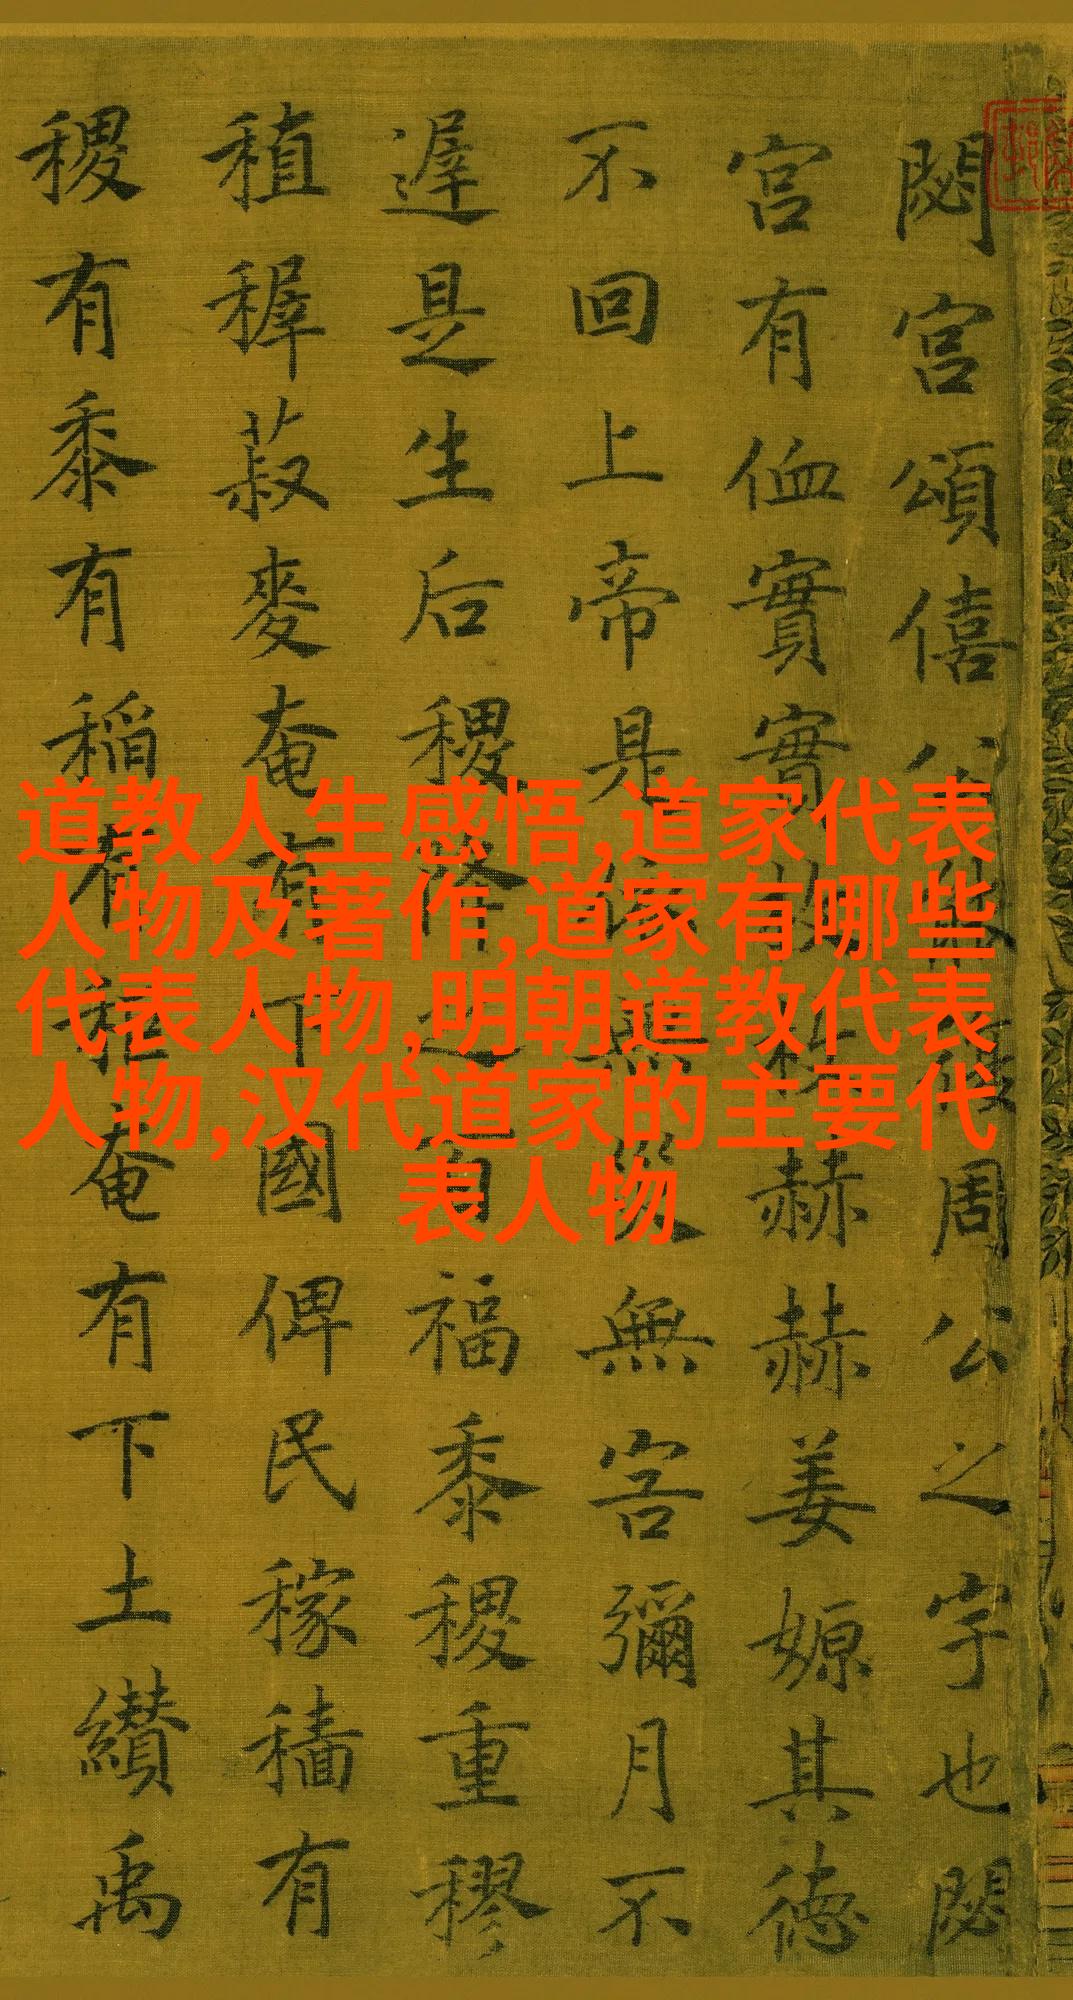 閟宮頌僖公能復周公之宇也閟
宮有侐實實枚枚赫赫姜嫄其德
不回上帝是依無災無害彌月不
遲是生后稷降之百福黍稷重穋
稙稺菽麥奄有下國俾民稼穡有
稷有黍有稻有秬奄有下土纘禹
道教人生感悟,道家代表
人物及著作,道家有哪些
代表人物,明朝道教代表
人物,汉代道家的主要代
表人物